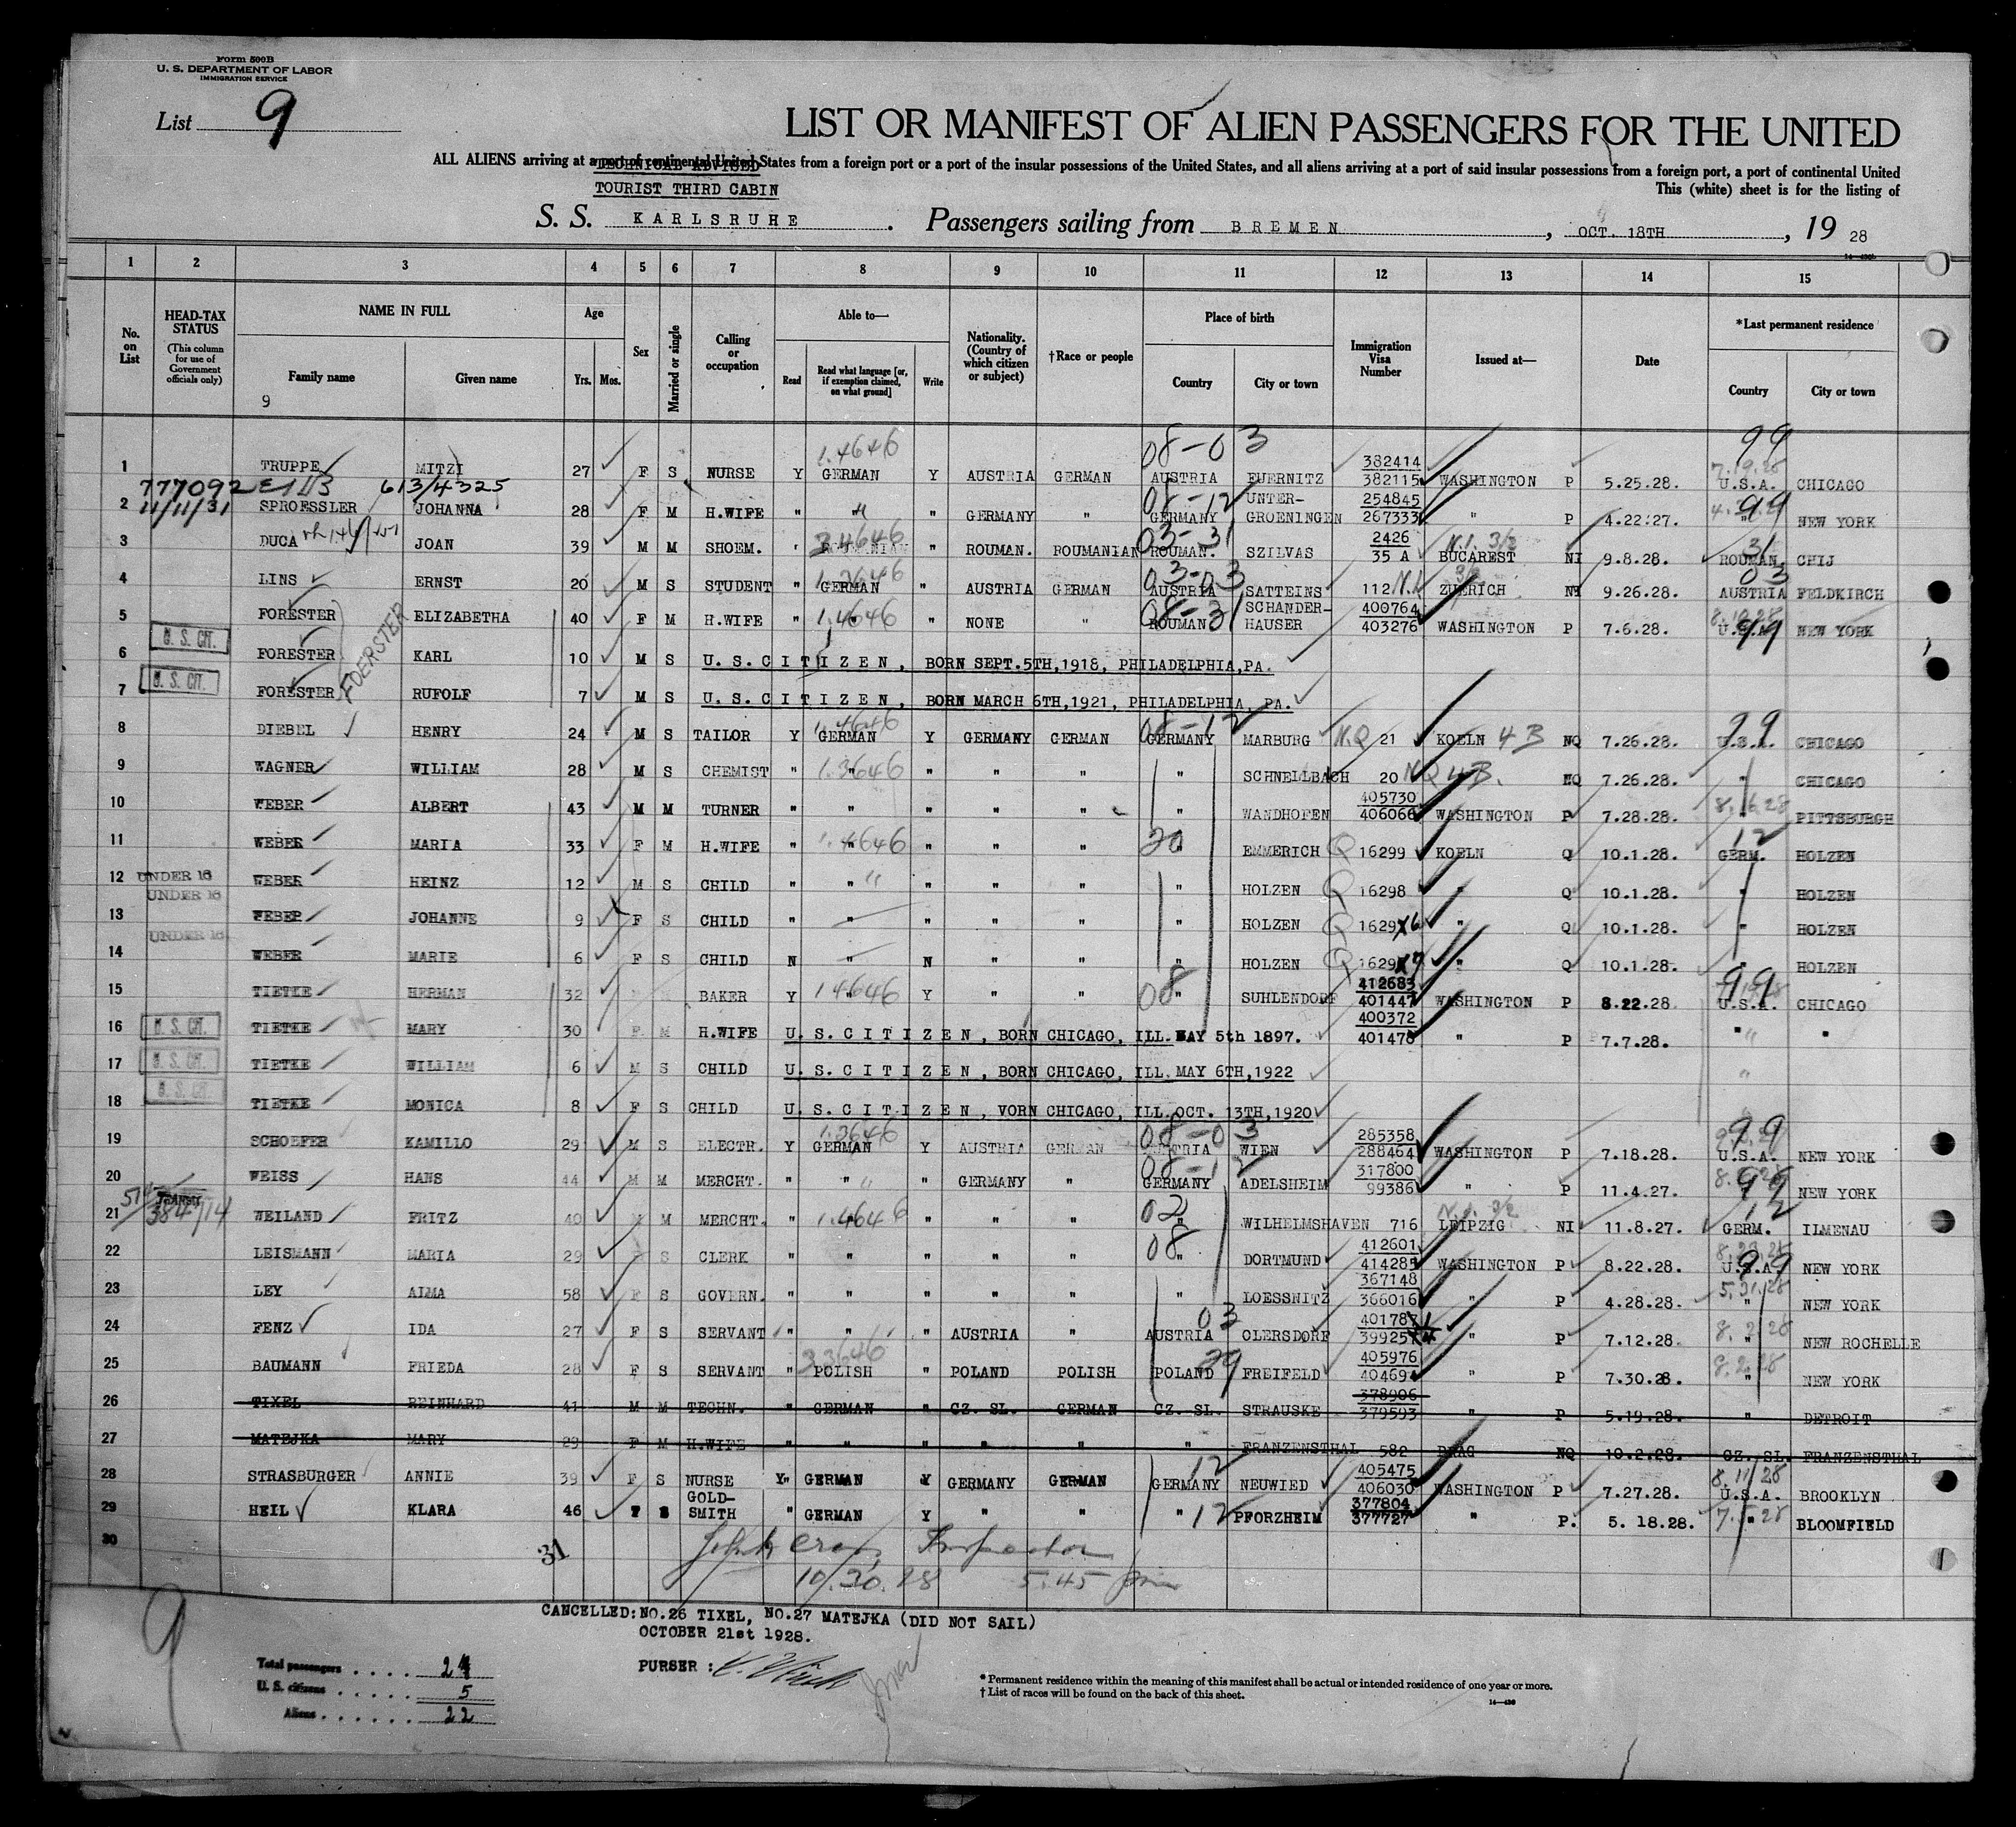 Form 500B
U. S. DEPARTMENT OF LABOR
IMMIGRATION SERVICE
List 9
LIST OR MANIFEST OF ALIEN PASSENGERS FOR THE UNITED
ALL ALIENS arriving at a port of continental United States from a foreign port or a port of the insular possessions of the United States, and all aliens arriving at a port of said insular possessions from a foreign port, a port of continental United
This (white) sheet is for the listing of
TOURIST THIRD CABIN
S. S. KARLSRUHE. Passengers sailing from BREMEN, OCT. 18TH, 19 28
1 2 3 4 5 6 7 8 9 10 11 12 13 14 15
No. on List
HEAD-TAX STATUS (This column for use of Government officials only)
NAME IN FULL
Family name
Given name
Age
Yrs. Mos.
Sex
Married or single
Calling or occupation
Able to—
Read
Read what language [or, if exemption claimed, on what ground]
Write
Nationality. (Country of which citizen or subject)
†Race or people
Place of birth
Country
City or town
Immigration Visa Number
Issued at—
Date
*Last permanent residence
Country
City or town
9
1 TRUPPE MITZI 27 F S NURSE Y GERMAN 1.4646 Y AUSTRIA GERMAN AUSTRIA 08-03 FUERNITZ 382414 382115 WASHINGTON P 5.25.28. 99 7.19.28 U.S.A. CHICAGO
777092 613/4325
2 11/11/31 SPROESSLER JOHANNA 28 F M H.WIFE " " " GERMANY GERMANY 08-12 UNTER-GROENINGEN 254845 267333 " P 4.22:27. 99 " NEW YORK
3 DUCA JOAN 39 M M SHOEM. " ROUMANIAN " ROUMAN. ROUMANIAN ROUMAN. 03-31 SZILVAS 2426 35 A BUCAREST N.I. 3/2 NI 9.8.28. 31 ROUMAN. CHIJ
4 LINS ERNST 20 M S STUDENT " GERMAN 1.3646 " AUSTRIA GERMAN AUSTRIA 03-03 SATTEINS 112 N.I. ZUERICH 3/2 NI 9.26.28. 03 AUSTRIA FELDKIRCH
5 FORESTER ELIZABETHA 40 F M H.WIFE " " 1.4646 " NONE " ROUMAN 08-31 SCHANDER-HAUSER 400764 403276 WASHINGTON P 7.6.28. 99 U.S.A. NEW YORK
U. S. CIT.
6 FORESTER KARL 10 M S U. S. CITIZEN, BORN SEPT.5TH,1918, PHILADELPHIA,PA.
FOERSTER
U. S. CIT.
7 FORESTER RUFOLF 7 M S U. S. CITIZEN, BORN MARCH 6TH,1921, PHILADELPHIA, PA.
8 DIEBEL HENRY 24 M S TAILOR Y GERMAN 1.4646 Y GERMANY GERMAN GERMANY 08-12 MARBURG N.Q 21 KOELN 4 B NQ 7.26.28. 99 U.S.A. CHICAGO
9 WAGNER WILLIAM 28 M S CHEMIST " " 1.3646 " " " " SCHNELLBACH 20 NQ 4B. NQ 7.26.28. " CHICAGO
10 WEBER ALBERT 43 M M TURNER " " " " " " WANDHOFEN 405730 406066 WASHINGTON P 7.28.28. " PITTSBURGH
11 WEBER MARIA 33 F M H.WIFE " " 1.4646 " " " " 20 EMMERICH Q 16299 KOELN Q 10.1.28. 12 GERM. HOLZEN
12 UNDER 16 WEBER HEINZ 12 M S CHILD " " " " " " HOLZEN Q 16298 " Q 10.1.28. " HOLZEN
UNDER 16
13 WEBER JOHANNE 9 F S CHILD " " " " " " HOLZEN Q 1629X6 " Q 10.1.28. " HOLZEN
UNDER 16
14 WEBER MARIE 6 F S CHILD N " N " " " HOLZEN Q 1629X7 " Q 10.1.28. " HOLZEN
15 TIETKE HERMAN 32 BAKER Y " 14646 Y " " " 08 SUHLENDORF 412683 401447 WASHINGTON P 8.22.28. 99 U.S.A. CHICAGO
U. S. CIT.
16 TIETKE MARY 30 F M H.WIFE U. S. CITIZEN, BORN CHICAGO, ILL. MAY 5th 1897. 400372 401478 " P 7.7.28. " "
U. S. CIT.
17 TIETKE WILLIAM 6 M S CHILD U. S. CITIZEN, BORN CHICAGO, ILL. MAY 6TH,1922 "
U. S. CIT.
18 TIETKE MONICA 8 F S CHILD U. S. CITIZEN, VORN CHICAGO, ILL. OCT. 13TH,1920
19 SCHOEFER KAMILLO 29 M S ELECTR. Y GERMAN 1.3646 Y AUSTRIA GERMAN AUSTRIA 08-03 WIEN 285358 288464 WASHINGTON P 7.18.28. 99 U.S.A. NEW YORK
20 WEISS HANS 44 M M MERCHT. " " " GERMANY " GERMANY 08-12 ADELSHEIM 317800 99386 " P 11.4.27. 99 NEW YORK
21 WEILAND FRITZ 40 M M MERCHT. " " 1.4646 " " " " 02 WILHELMSHAVEN 716 LEIPZIG N.I. 3/2 NI 11.8.27. 12 GERM. ILMENAU
22 LEISMANN MARIA 29 F S CLERK " " " " " " 08 DORTMUND 412601 414285 WASHINGTON P 8.22.28. 99 U.S.A. NEW YORK
23 LEY ALMA 58 F S GOVERN. " " " " " " LOESSNITZ 367148 366016 " P 4.28.28. 5.31.28 " NEW YORK
24 FENZ IDA 27 F S SERVANT " " " AUSTRIA " AUSTRIA 03 OLERSDORF 401787 " P 7.12.28. " NEW ROCHELLE
25 BAUMANN FRIEDA 28 F S SERVANT " POLISH " POLAND POLISH POLAND 29 FREIFELD 405976 404697 " P 7.30.28. 8.2.28 " NEW YORK
26 TIXEL REINHARD 41 M M TECHN. " GERMAN " CZ. SL. GERMAN CZ. SL. STRAUSKE 378906 379593 " P 5.19.28. " DETROIT
27 MATEJKA MARY 29 F M H.WIFE " " " " " " FRANZENSTHAL 582 PRAG NQ 10.2.28. CZ. SL. FRANZENSTHAL
28 STRASBURGER ANNIE 39 F S NURSE Y" GERMAN Y GERMANY GERMAN GERMANY 12 NEUWIED 405475 406030 WASHINGTON P 7.27.28. 8.11/28 U.S.A. BROOKLYN
29 HEIL KLARA 46 F S GOLD-SMITH " GERMAN Y " " " 12 PFORZHEIM 377804 377727 " P. 5. 18.28. " BLOOMFIELD
30
31
Inspector
10/30.28 5.45 pm
CANCELLED: NO.26 TIXEL, NO.27 MATEJKA (DID NOT SAIL)
OCTOBER 21st 1928.
PURSER :
9
Total passengers . . . . 24
U. S. citizens . . . . . 5
Aliens . . . . . . 22
* Permanent residence within the meaning of this manifest shall be actual or intended residence of one year or more.
† List of races will be found on the back of this sheet.
14—430